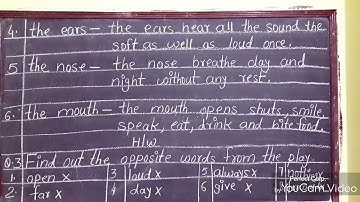 4. the ears – the ears hear all the sound the
soft as well as loud once.
5 the nose – the nose breathe day and
night without any rest.
6. the mouth – the mouth opens shuts, smile,
speak, eat, drink and bite food.
H/w
Q.3 Find out the opposite words from the play
1. open x 3 loud x 5 always x 7
2. far x 4 day x 6 give x
YouCam Video